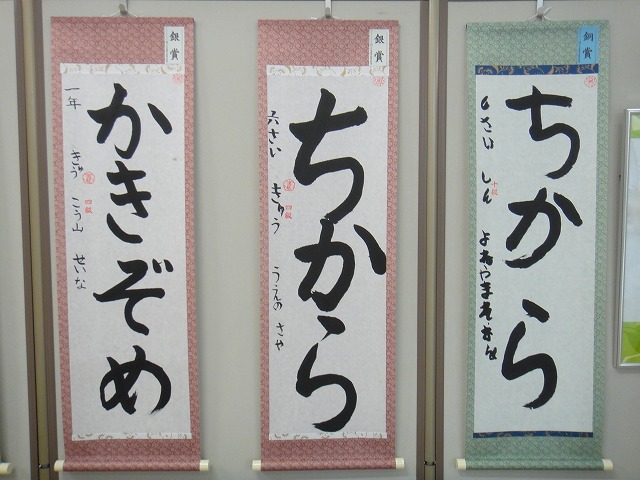 銀賞
かきぞめ
一年 きゅう 四級 こう山 せいな
銀賞
ちから
六さい きゅう 四級 うえの さや
銅賞
ちから
さい しん 十級